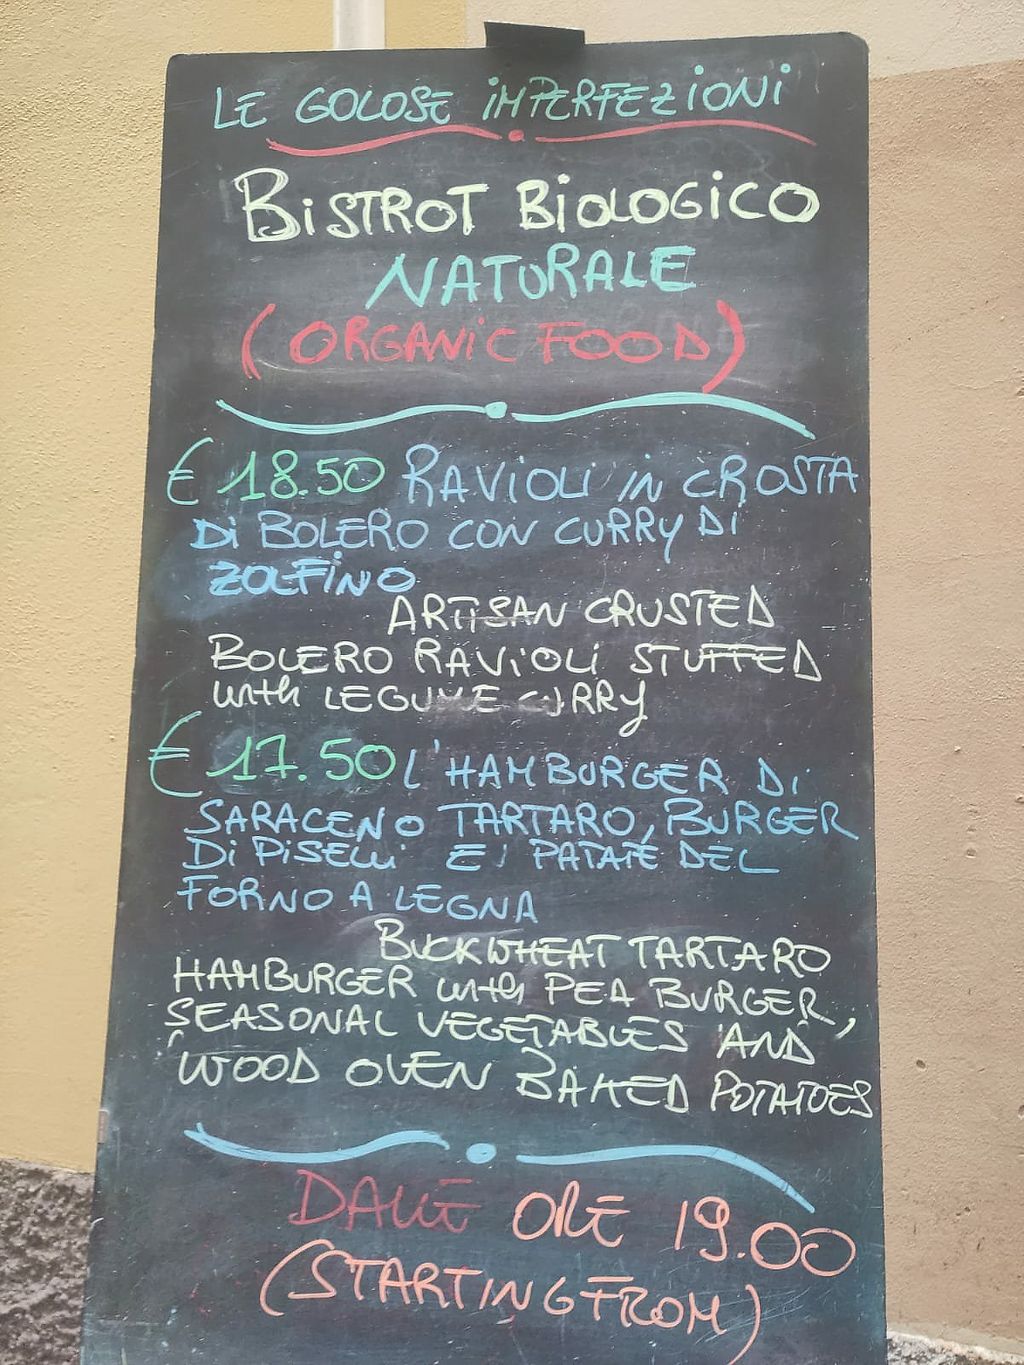 LE GOLOSE iMPERFEZiONi
BiSTROT BiOLOGiCO
NATURALE
(ORGANiC FOOD)
€ 18.50 RAViOLi iN CROSTA
Di BOLERO CON CURRY Di
ZOLFiNO
ARTiSAN CRUSTED
BOLERO RAViOLi STUFFED
with LEGUME CURRY
€ 17.50 L'HAMBURGER Di
SARACENO TARTARO, BURGER
Di PiSELLi E PATATE DEL
FORNO A LEGNA
BUCKWHEAT TARTARO
HAMBURGER with PEA BURGER,
SEASONAL VEGETABLES AND
WOOD OVEN BAKED POTATOES
DALLE ORE 19.00
(STARTING FROM)